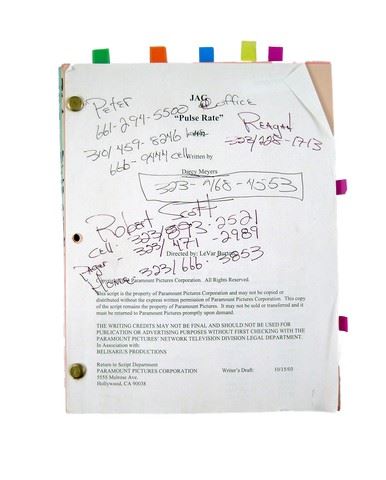 JAG
Peter
"Pulse Rate"
661-294-5500 @ office
310/459-8246 home
Reagan
323/228-1713
666-9444 cell
Written by
Darcy Meyers
323-768-4553
Robert Scott
Cell: 323/893-2521
Pager 323/471-2989
Home: 323/666-3853
Directed by: LeVar Burton
Paramount Pictures Corporation. All Rights Reserved.
This script is the property of Paramount Pictures Corporation and may not be copied or
distributed without the express written permission of Paramount Pictures Corporation. This copy
of the script remains the property of Paramount Pictures. It may not be sold or transferred and it
must be returned to Paramount Pictures promptly upon demand.
THE WRITING CREDITS MAY NOT BE FINAL AND SHOULD NOT BE USED FOR
PUBLICATION OR ADVERTISING PURPOSES WITHOUT FIRST CHECKING WITH THE
PARAMOUNT PICTURES' NETWORK TELEVISION DIVISION LEGAL DEPARTMENT.
In Association with:
BELISARIUS PRODUCTIONS
Return to Script Department
PARAMOUNT PICTURES CORPORATION Writer's Draft: 10/15/03
5555 Melrose Ave.
Hollywood, CA 90038